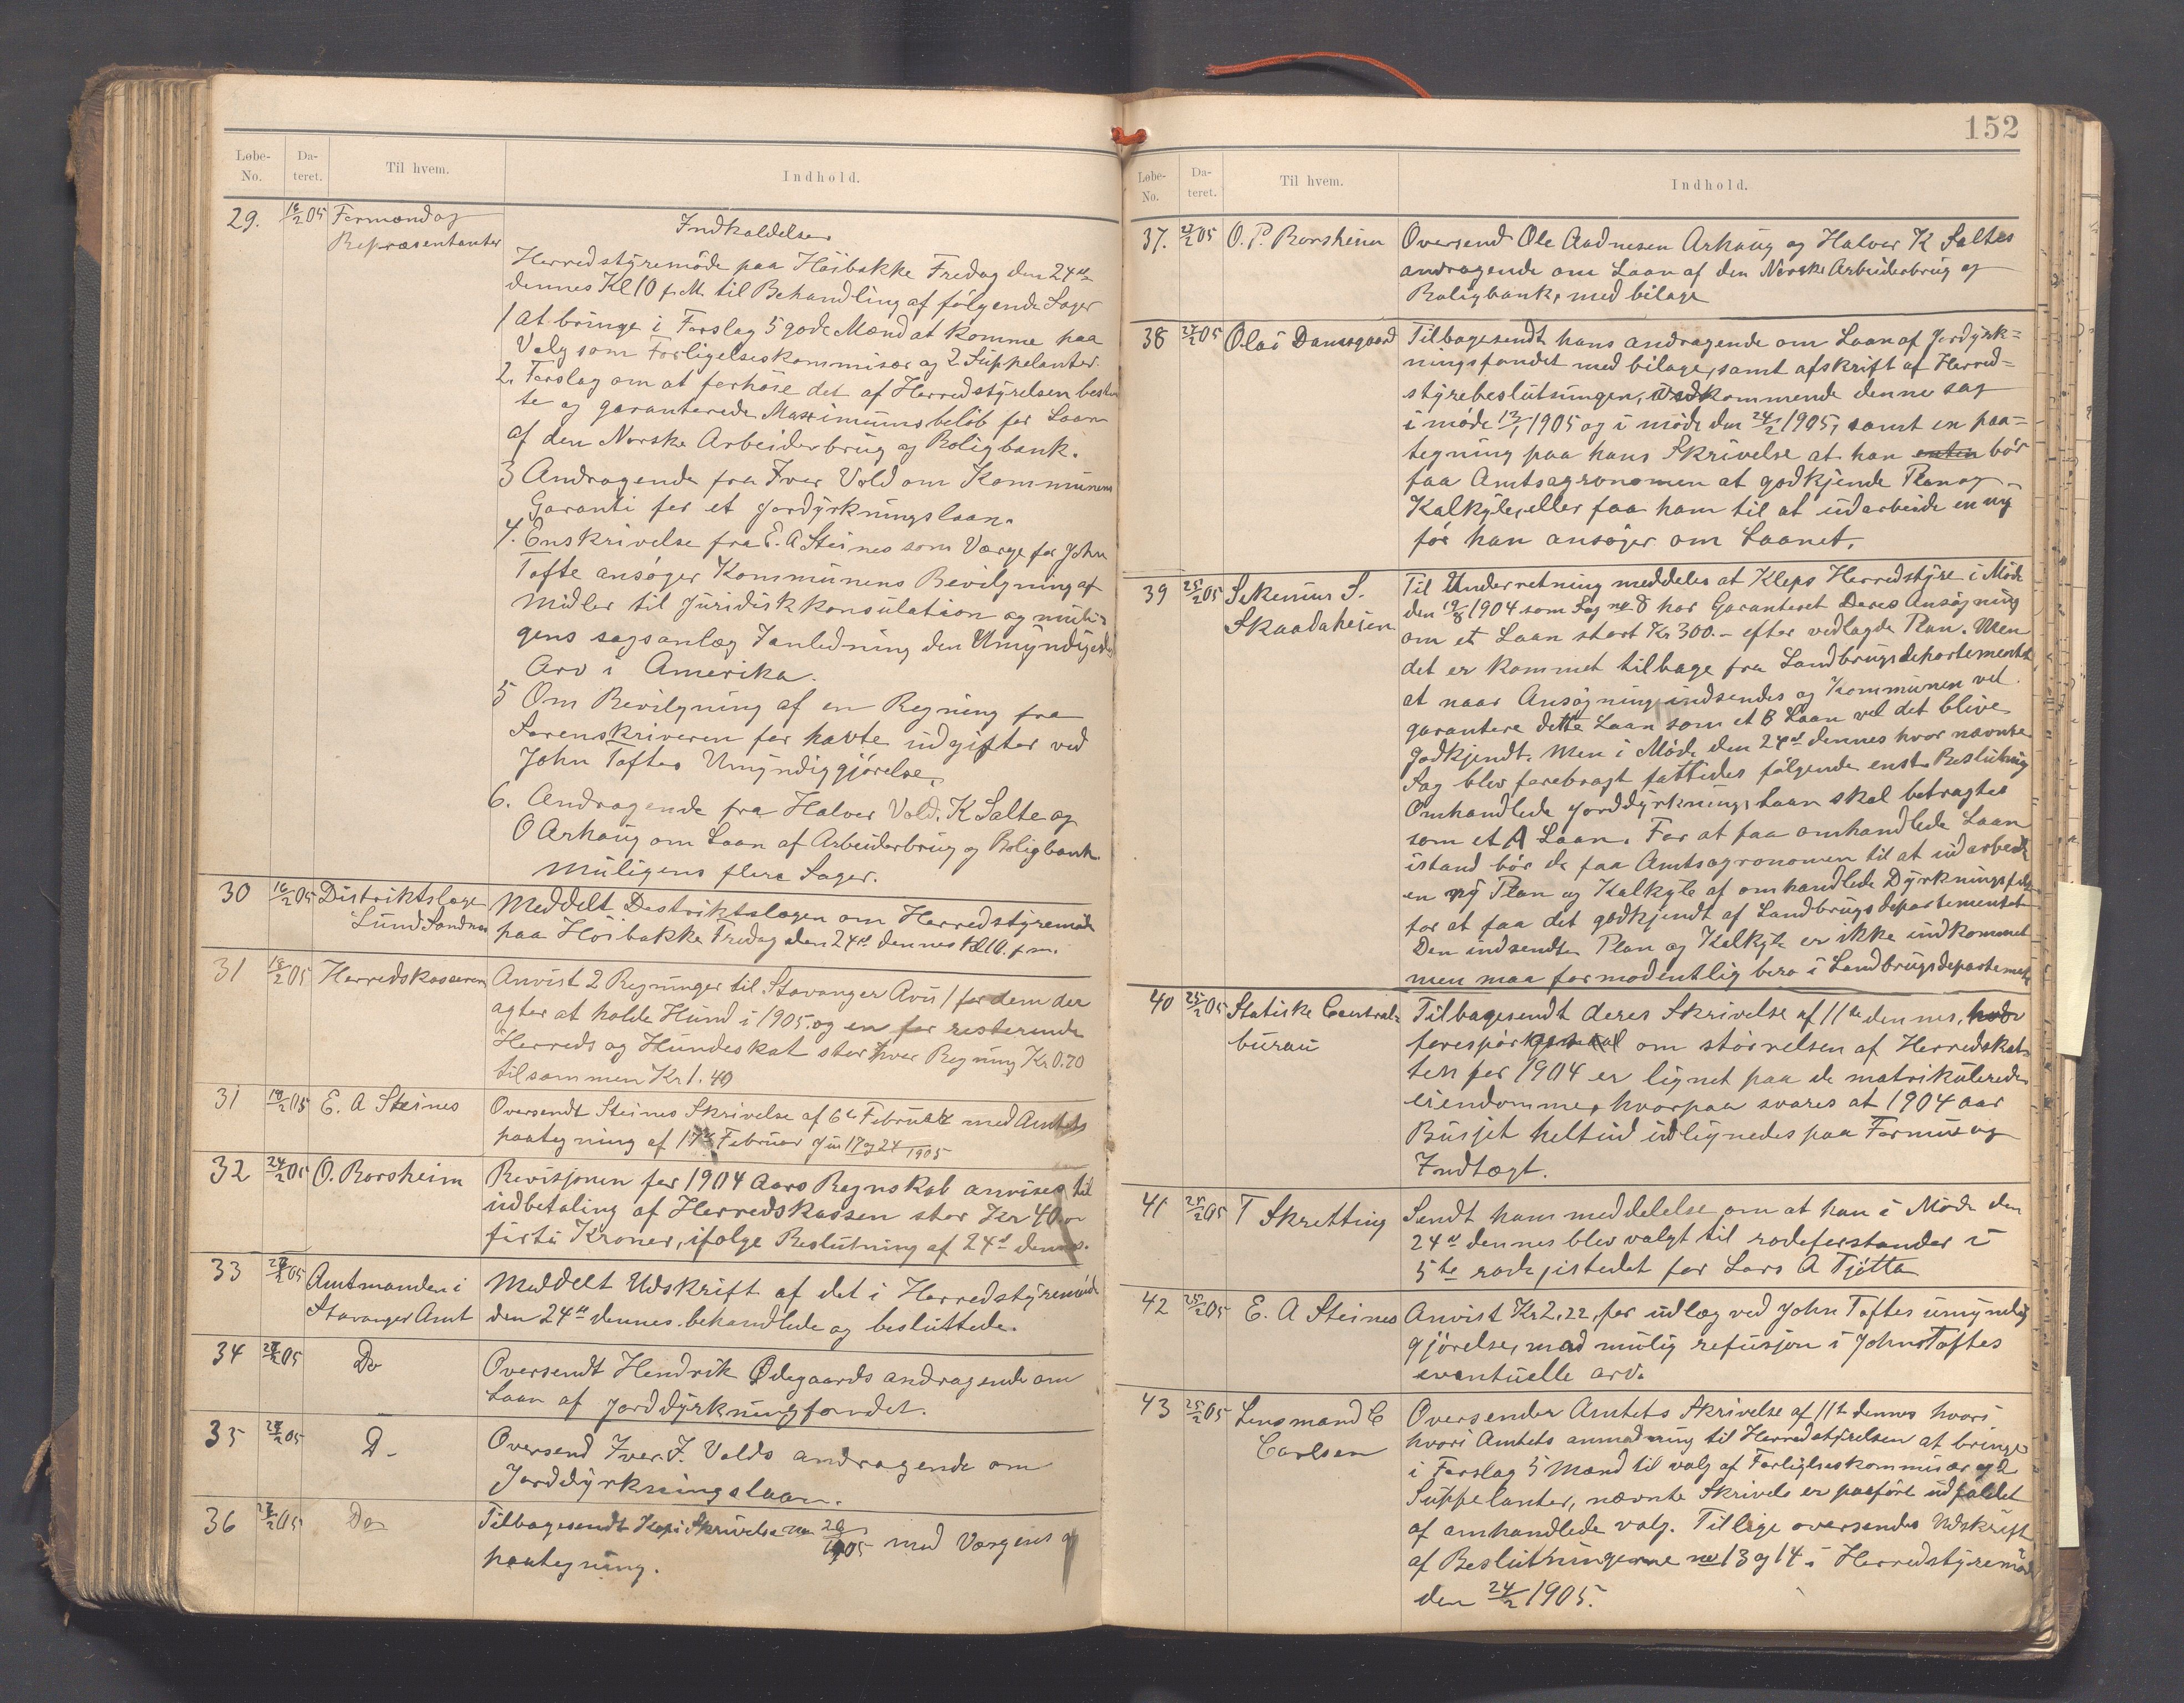 Løbe-No. Dateret. Til hvem. Indhold.
29. 16/2 05 Formænd og
Repræsentanter
Indkaldelse
Herredstyremøde paa Höibakke Fredag den 24de
dennes Kl 10 f.M. til Behandling af følgende Sager
1 at bringe i Forslag 5 gode Mænd at komme paa
Valg som Forligelseskommisær og 2 Suppelanter.
2. Forslag om at forhöie det af Herredstyrelsen bestem
te og garanterede Maximumsbelöb for Laan
af den Norske Arbeiderbrug og Boligbank.
3 Andragende fra Iver Vold om Kommunens
Garanti for et Jordyrkningslaan.
4. En skrivelse fra E. A Steines som Værge for John
Tofte ansøger Kommunens Bevilgning af
Midler til Juridisk konsulation og muli-
gens sagsanlæg I anledning den Umyndiges
Arv i Amerika.
5 Om Bevilgning af en Regning fra
Sorenskriveren for havte udgifter ved
John Toftes Umyndiggjörelse.
6. Andragende fra Halvor Vold, K Salte og
O Arhaug om Laan af Arbeiderbrug og Boligbank.
Muligens flere Sager.
30 16/2 05 Distriktslæge
Lund Sandnes
Meddelt Destriktslægen om Herredstyremøde
paa Höibakke Fredag den 24de dennes Kl 10. f.m.
31 18/2 05 Herredskasseren
Anvist 2 Regninger til Stavanger Avis 1 for dem der
agter at holde Hund i 1905. og en for resterende
Herreds og Hundeskat stor hver Regning Kr 0.70
tilsammen Kr 1.40
31 19/2 05 E. A Steines
Oversendt Steines Skrivelse af 6te Februar med Amtets
paategning af 17de Februar Jur 17 og 24 1905
32 24/2 05 O. Borsheim
Revisjonen for 1904 Aars Regnskab anvises til
udbetaling af Herredskassen stor Kr 40.00
firti Kroner, ifølge Beslutning af 24de dennes.
33 05 Amtmanden i
Stavanger Amt
Meddelt Udskrift af det i Herredstyremøde
den 24de dennes behandlede og besluttede.
34 05 Do
Oversendt Hendrik Ødegaards andragende om
Laan af Jorddyrkningsfondet.
35 05 D-
Oversend Iver J. Volds andragende om
Jorddyrkningslaan.
36 05 Do
Tilbagesendt Kopi Skrivelse 1905 med Værgens
paategning.
152
Løbe-No. Dateret. Til hvem. Indhold.
37. 05 O. P. Borsheim
Oversend Ole Aadnesen Arhaug og Halvor K Saltes
andragende om Laan af den Norske Arbeiderbrug og
Boligbank, med bilage
38 05 Olai Damsgaard
Tilbagesendt hans andragende om Laan af Jordyrk=
ningsfondet med bilage, samt afskrift af Herred=
styrebeslutningen, vedkommende denne sag
i møde 13/1 1905 og i møde den 24/2 1905, samt en paa=
tegning paa hans Skrivelse at han enten bör
faa Amtsagronomen at godkjende Plan og
Kalkyle, eller faa ham til at udarbeide en ny
för han ansøger om Laanet.
39 25/2 05 Sekenius S.
Skaadaheien
Til Underretning meddeles at Kleps Herredstyre i Møde
den 19/8 1904 som Sag no 8 har Garanteret Deres Ansøgning
om et Laan stort Kr 300.- efter vedlagde Plan. Men
det er kommet tilbage fra Landbrugsdepartementet
at naar Ansøgning indsendes og Kommunen vil
garantere dette Laan som et B Laan vil det blive
godkjendt. Men i Møde den 24de dennes hvor nævnte
Sag blev forebragt fattedes følgende enst. Beslutning
Omhandlede Jorddyrknings Laan skal betragtes
som et A Laan. For at faa omhandlede Laan
istand bör de faa Amtsagronomen til at udarbeide
en ny Plan og Kalkyle af omhandlede Dyrkningsfelt
for at faa det godkjendt af Landbrugsdepartementet
Den indsendte Plan og Kalkyle er ikke indkommet
men maa formodentlig bero i Landbrugsdepartementet
40 25/2 05 Statiske Central=
bureau
Tilbagesendt deres Skrivelse af 11te dennes, hvor
forespörges om størrelsen af Herredskat=
ten for 1904 er lignet paa de matrikulerede
eiendomme, hvorpaa svares at 1904 aar
Busjet heltud udlignedes paa Formue og
Indtægt.
41 25/2 05 T Skretting
Sendt ham meddelelse om at han i Møde den
24de dennes blev valgt til rodeforstander i
5te rode istedet for Lars A Tjötta
42 25/2 05 E. A Steines
Anvist Kr 2,22 for udlæg ved John Toftes umyndig
gjörelse, mod mulig refusjon i John Toftes
eventuelle arv.
43 25/2 05 Lensmand C
Carlsen
Oversender Amtets Skrivelse af 11te dennes hvori
hvori Amtets anmodning til Herredstyrelsen at bringe
i Forslag 5 Mænd til valg af Forligelseskommisær og 2
Suppelanter, nævnte Skrivels er paaført udfaldet
af omhandlede valg. Tillige oversendes Udskrift
af Beslutningerne no 13 og 14 i Herredstyremøde
den 24/2 1905.